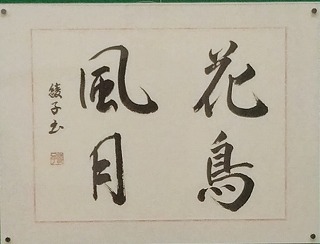 花鳥
風月
綾子書